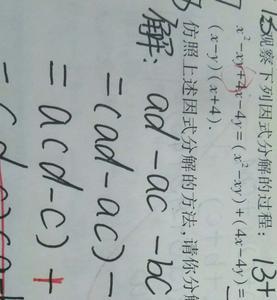 观察下列因式分解的过程:
x²-xy+4x-4y=(x²-xy)+(4x-4y)=
(x-y)(x+4).
仿照上述因式分解的方法,请你分
解: ad-ac-bc
=(ad-ac)-
=a(d-c)+